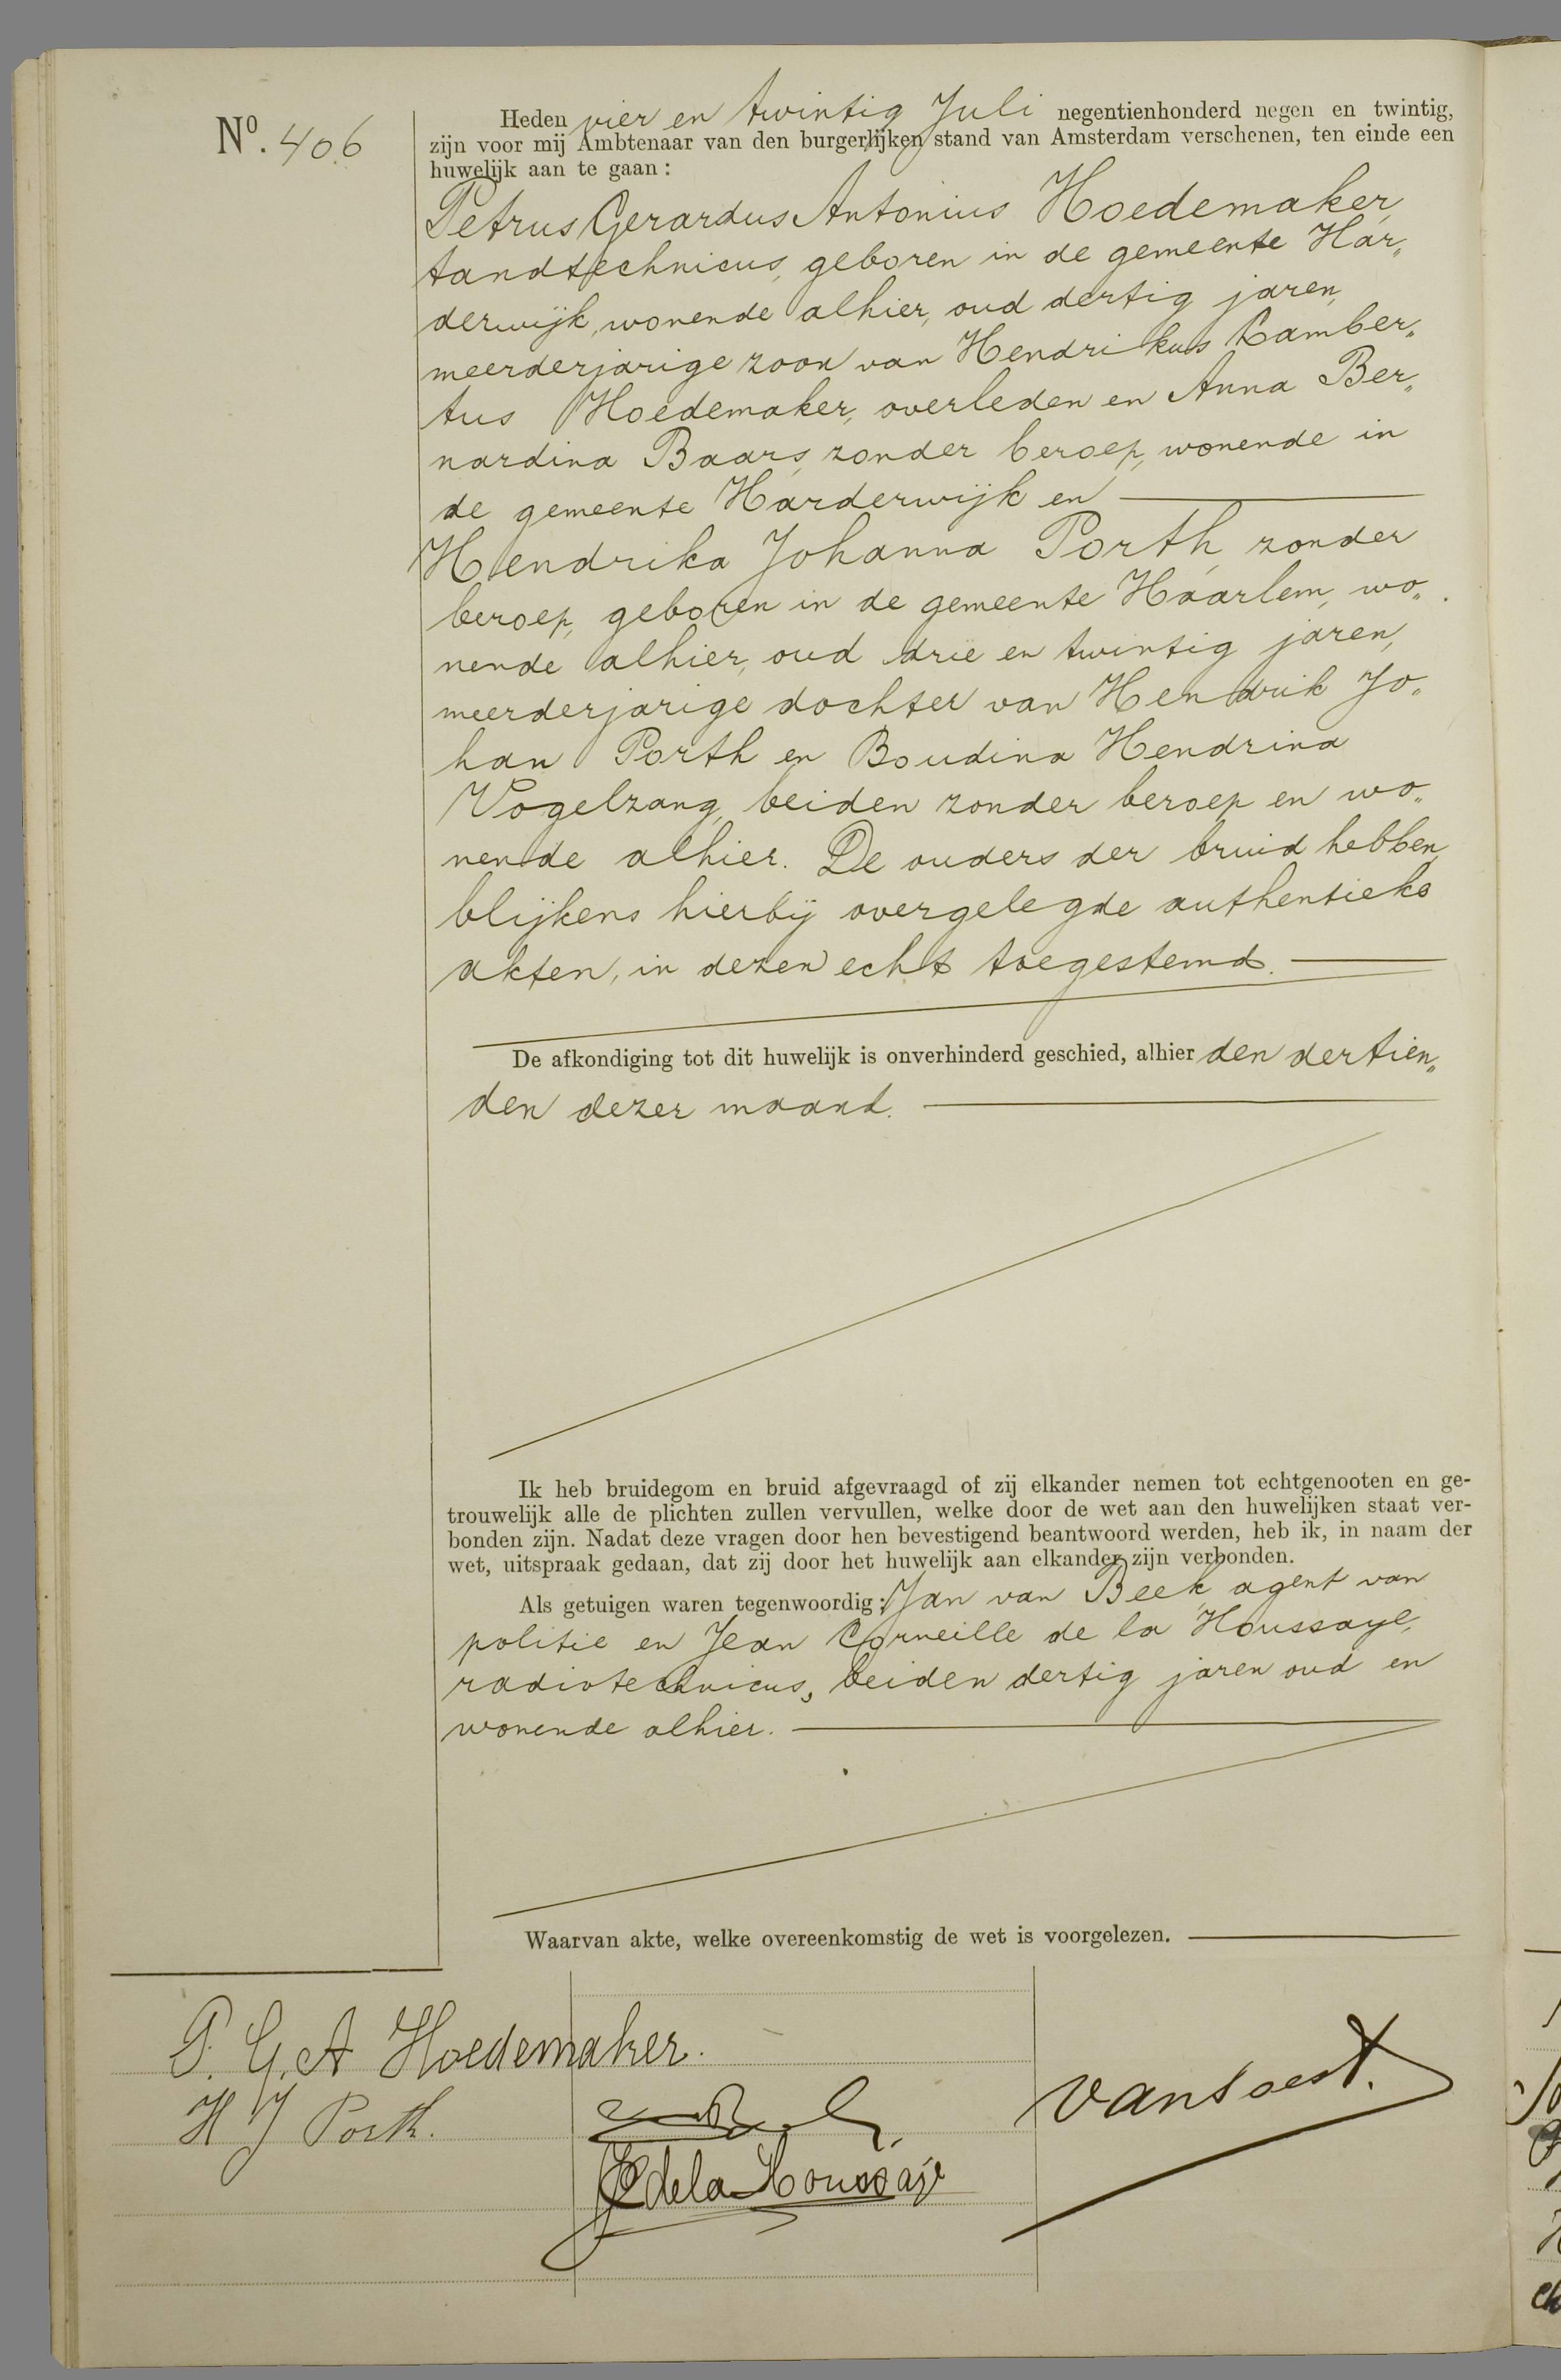 Nº. 406
Heden vier en twintig Juli negentienhonderd negen en twintig,
zijn voor mij Ambtenaar van den burgerlijken stand van Amsterdam verschenen, ten einde een
huwelijk aan te gaan:
Petrus Gerardus Antonius Hoedemaker,
tandtechnicus, geboren in de gemeente Har„
derwijk, wonende alhier, oud dertig jaren,
meerderjarige zoon van Hendrikus Lamber„
tus Hoedemaker, overleden en Anna Ber„
nardina Baars, zonder beroep, wonende in
de gemeente Harderwijk en
Hendrika Johanna Porth, zonder
beroep, geboren in de gemeente Haarlem, wo„
nende alhier, oud drie en twintig jaren,
meerderjarige dochter van Hendrik Jo„
han Porth en Boudina Hendrina
Vogelzang, beiden zonder beroep en wo„
nende alhier. De ouders der bruid hebben,
blijkens hierbij overgelegde authentieke
akten, in dezen echt toegestemd.
De afkondiging tot dit huwelijk is onverhinderd geschied, alhier den dertien„
den dezer maand.
Ik heb bruidegom en bruid afgevraagd of zij elkander nemen tot echtgenooten en ge-
trouwelijk alle de plichten zullen vervullen, welke door de wet aan den huwelijken staat ver-
bonden zijn. Nadat deze vragen door hen bevestigend beantwoord werden, heb ik, in naam der
wet, uitspraak gedaan, dat zij door het huwelijk aan elkander zijn verbonden.
Als getuigen waren tegenwoordig: Jan van Beek, agent van
politie en Jean Corneille de la Houssaye,
radiotechnicus, beiden dertig jaren oud en
wonende alhier.
Waarvan akte, welke overeenkomstig de wet is voorgelezen.
P. G. A Hoedemaker.
H J Porth.
JC de la Houssaye
van Soest.